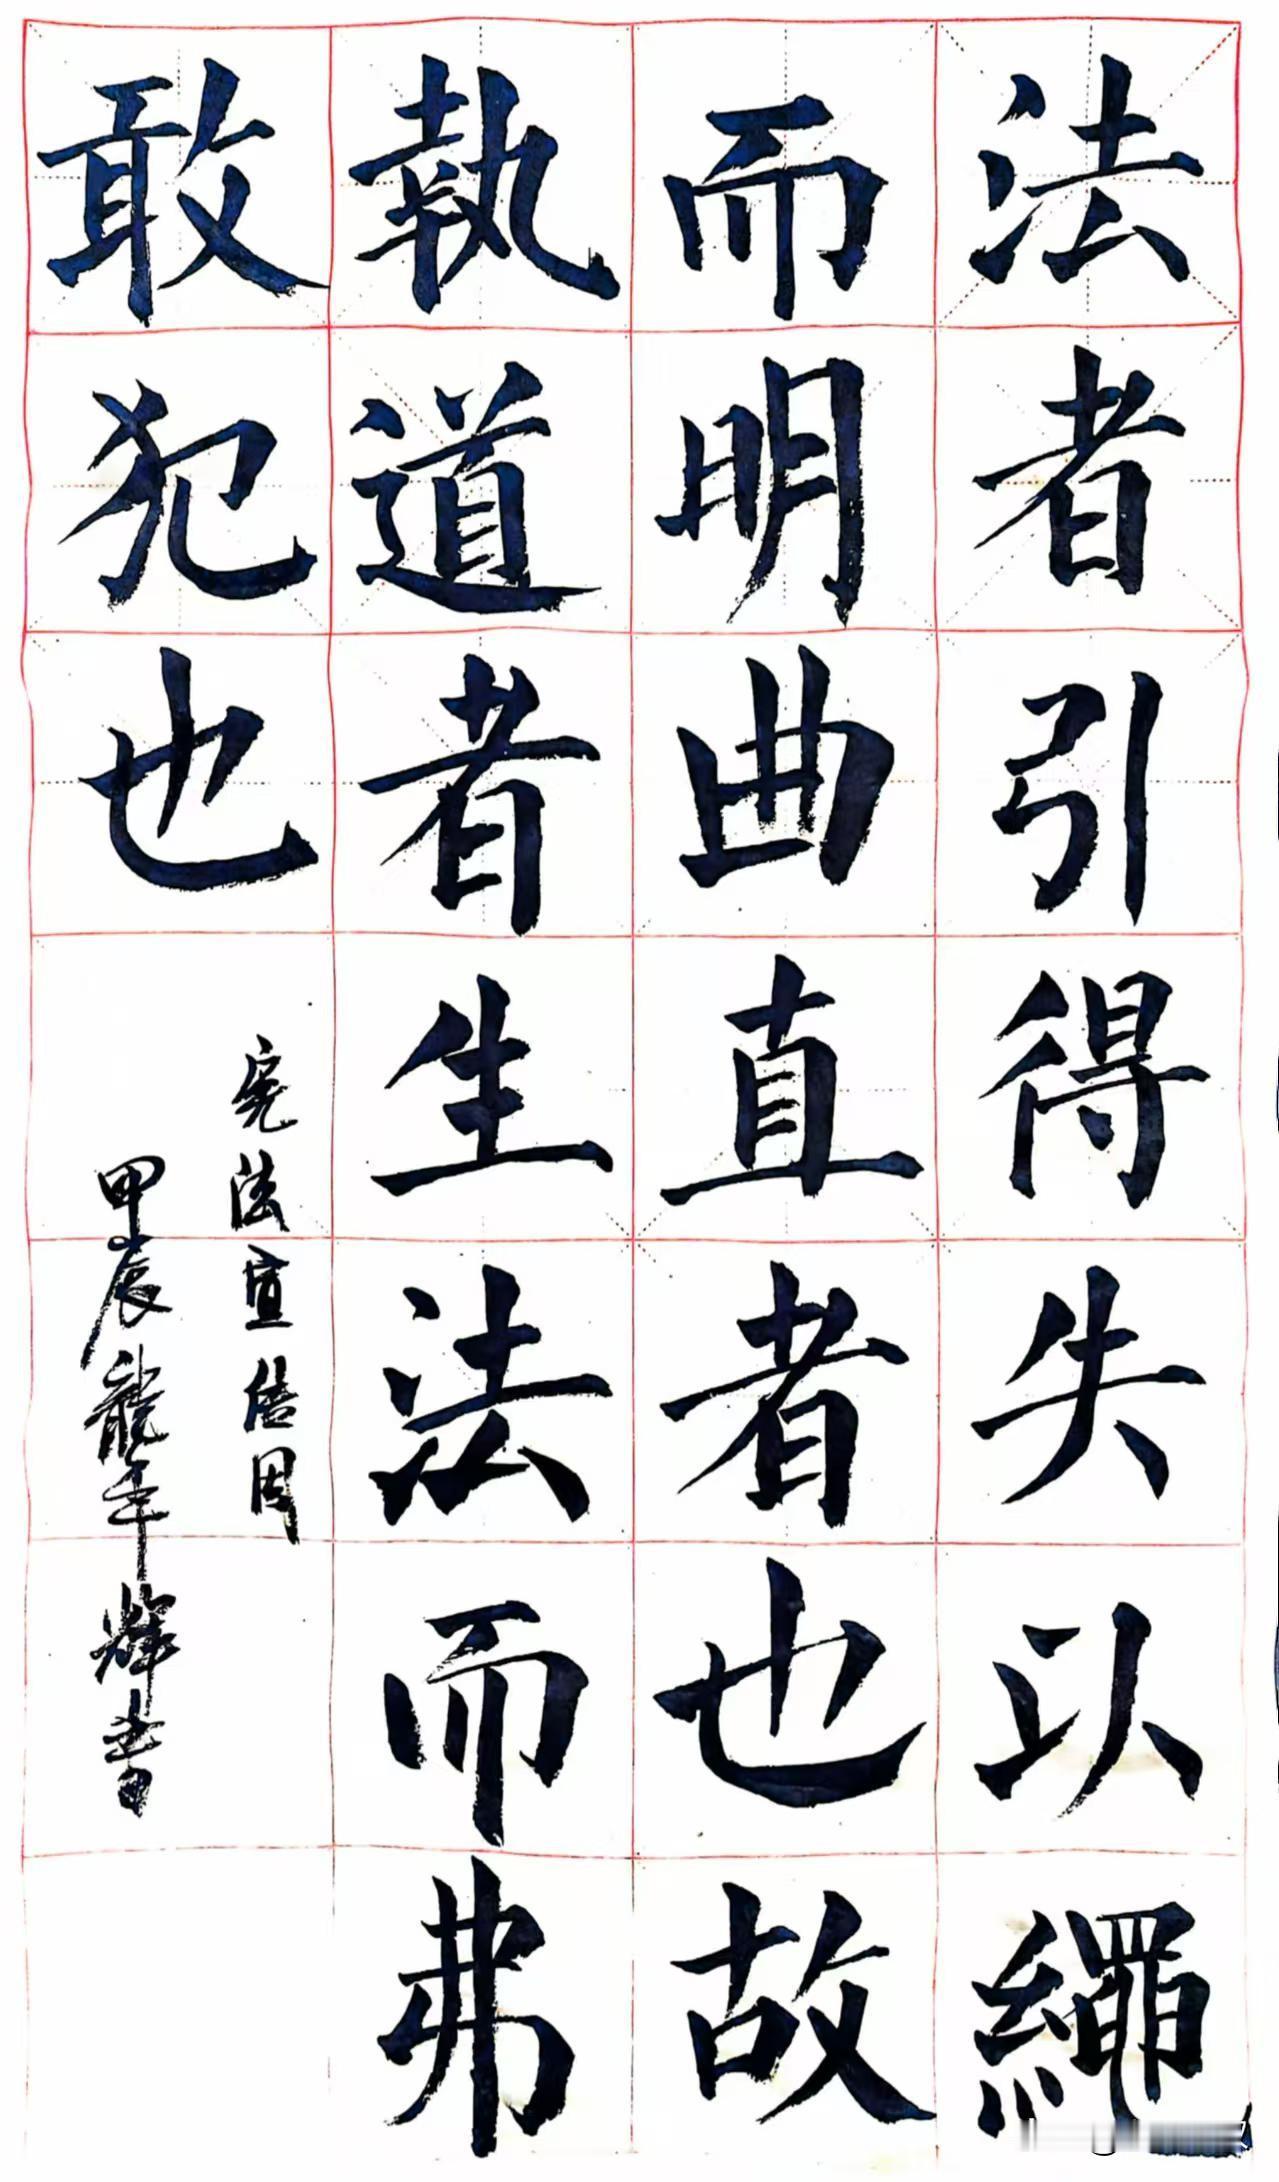 法者引得失以繩
而明曲直者也故
執道者生法而弗
敢犯也
宪法宣传周
甲辰龍年輝书